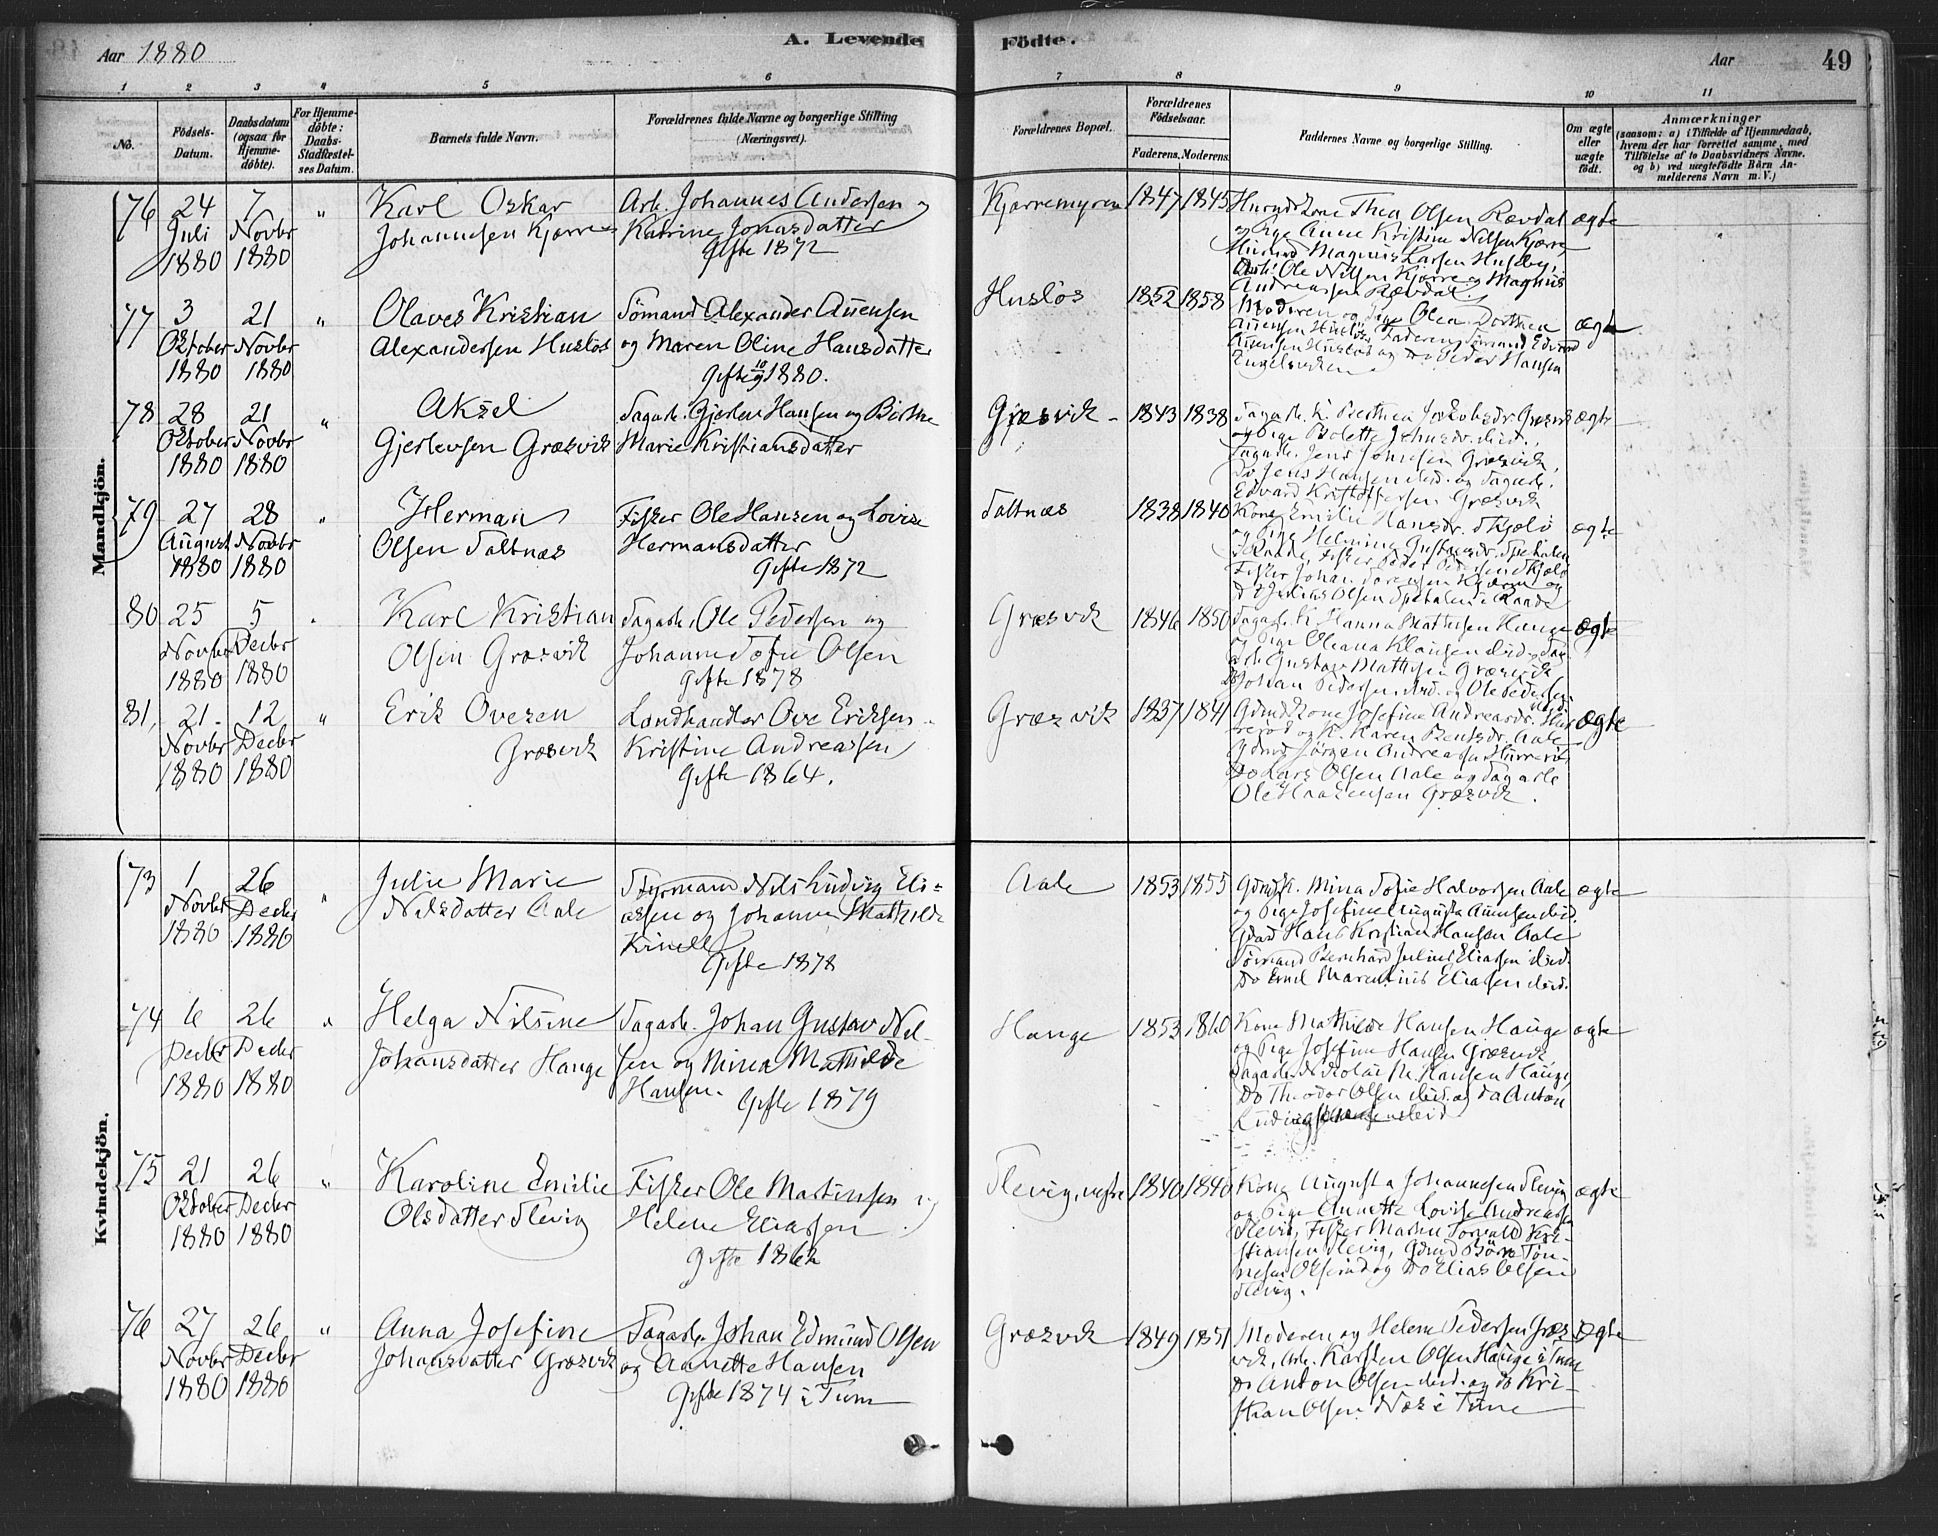 Aar 1880
A. Levende Födte.
Aar
49
1 2 3 4 5 6 7 8 9 10 11
No.
Födsels-Datum.
Daabsdatum (ogsaa for Hjemmedöbte).
For Hjemmedöbte: Daabs-Stadfæstelses Datum.
Barnets fulde Navn.
Forældrenes fulde Navne og borgerlige Stilling (Næringsvei).
Forældrenes Bopæl.
Forældrenes Födselsaar.
Faderens. Moderens.
Faddernes Navne og borgerlige Stilling.
Om ægte eller uægte födt.
Anmærkninger
(saasom: a) i Tilfælde af Hjemmedaab,
hvem der har forrettet samme, med
Tilföielse af to Daabsvidners Navne.
og b) ved uægtefödte Börn An-
melderens Navn m. V.)
Mandkjön.
76 24 Juli 1880 7 Novbr 1880 "
Karl Oskar
Johannesen Kjærre
Arb. Johannes Andersen og
Katrine Jonasdatter
Gifte 1872
Kjærremyren 1847 1845
Thea Olsen Rævdal
og Pige Anne Kristine Nilsen Kjærre
Magnus Larsen Huseby,
Arb. Ole Nilsen Kjærre og Magnus
Andreassen Rævdal.
ægte
77 3 Oktober 1880 21 Novbr 1880 "
Olaves Kristian
Alexandersen Huslös
Sömand Alexander Auensen
og Maren Oline Hansdatter
Gifte 10/9 1880.
Huslös 1852 1858
Moderen og Pige Olea Dorthea
Auensen Huslös, Faderen, Sömand Edvard
Auensen Huslös og Do Peder Hansen
Engelsviken
ægte
78 28 Oktober 1880 21 Novbr 1880 "
Aksel
Gjerlevsen Græsvik
Sagarb. Gjerlev Hansen og Birthe
Marie Kristiansdatter
Græsvik 1843 1838
Sagarb. K. Berthea Jakobsdr. Græsvik
og Pige Bolette Johnsdr. ibid.,
Sagarb. Jens Jonesen Græsvik,
Do Jens Hansen ibid. og Sagarb.
Edvard Kristoffersen Græsvik
ægte
79 27 August 1880 28 Novbr 1880 "
Herman
Olsen Saltnæs
Fisker Ole Hansen og Lovise
Hermansdatter
Gifte 1872
Saltnæs 1838 1840
Kone Emilie Hansdr.
og Pige Helmine Gustavsdr. Spetalen
i Raade, Fisker Peder Pedersen
Fisker Johan Sörensen
Julius Olsen Spetalen i Raade
ægte
80 25 Novbr 1880 5 Decbr 1880 "
Karl Kristian
Olsen Græsvik
Sagarb. Ole Pedersen og
Johanne Sofie Olsen
Gifte 1878
Græsvik 1846 1850
Sagarb. K. Hanna Mathisen Hauge
og Pige Oleana Klausen ibid, Sag
arb. Gustav Mathisen Græsvik
Do Johan Pedersen ibid. og Ole Pedersen
ibid.
ægte
81, 21 Novbr 1880 12 Decbr 1880 "
Erik Ovesen
Græsvik
Landhandler Ove Eriksen
Kristine Andreassen
Gifte 1864.
Græsvik 1837 1841
Gdmd Kone Josefine Andreasdr. Hur
reröd og K. Karen Bentsdr. Aale
Gdmd Jörgen Andreassen Hurreröd
Do Lars Olsen Aale og Sagarb
Ole Haakensen Græsvik.
ægte
Kvindekjön.
73 1 Novbr 1880 26 Decbr 1880 "
Julie Marie
Nilsdatter Aale
Styrmand Nils Ludvig Eli=
assen og Johanne Mathilde
Kinell
Gifte 1878
Aale 1853 1855
Gdmd K. Mina Sofie Halvorsen Aale
og Pige Josefine Augusta Auensen ibid.
Gdmd Hans Kristian Hansen Aale
Sömand Bernhard Julius Eliassen ibid.
Do Emil Marentius Eliassen ibid.
ægte
74 6 Decbr 1880 26 Decbr 1880 "
Helga Nilsine
Johansdatter Hauge
Sagarb. Johan Gustav Nil-
sen og Mina Mathilde
Hansen.
Gifte 1879
Hauge 1853 1860
Kone Mathilde Hansen Hauge
og Pige Josefine Hansen Græsvik,
Sagarb. Nikolai M. Hansen Hauge,
Do Theodor Olsen ibid. og Do Anton
Ludvig Johansen ibid
ægte
75 21 Oktober 1880 26 Decbr 1880 "
Karoline Emilie
Olsdatter Slevig
Fisker Ole Martinsen og
Helene Eliassen
Gifte 1862
Slevig, vestre 1840 1840
Kone Augusta Johannesen Slevig
og Pige Annette Lovise Andreassen
Slevig, Fisker Martin Torvald Kri-
stiansen Slevig, Gdmd Börre Tön-
nesen Olseröd og Do Elias Olsen
Slevig.
ægte
76 27 Novbr 1880 26 Decbr 1880 "
Anna Josefine
Johansdatter Græsvik
Sagarb. Johan Edmund Olsen
og Annette Hansen
Gifte 1874 i Tune
Græsvik 1849 1851
Moderen og Helene Pedersen Græs
vik, Arb. Karsten Olsen Hauge i Tune
Do Anton Olsen ibid. og Do Kri-
stian Olsen Næs i Tune
ægte